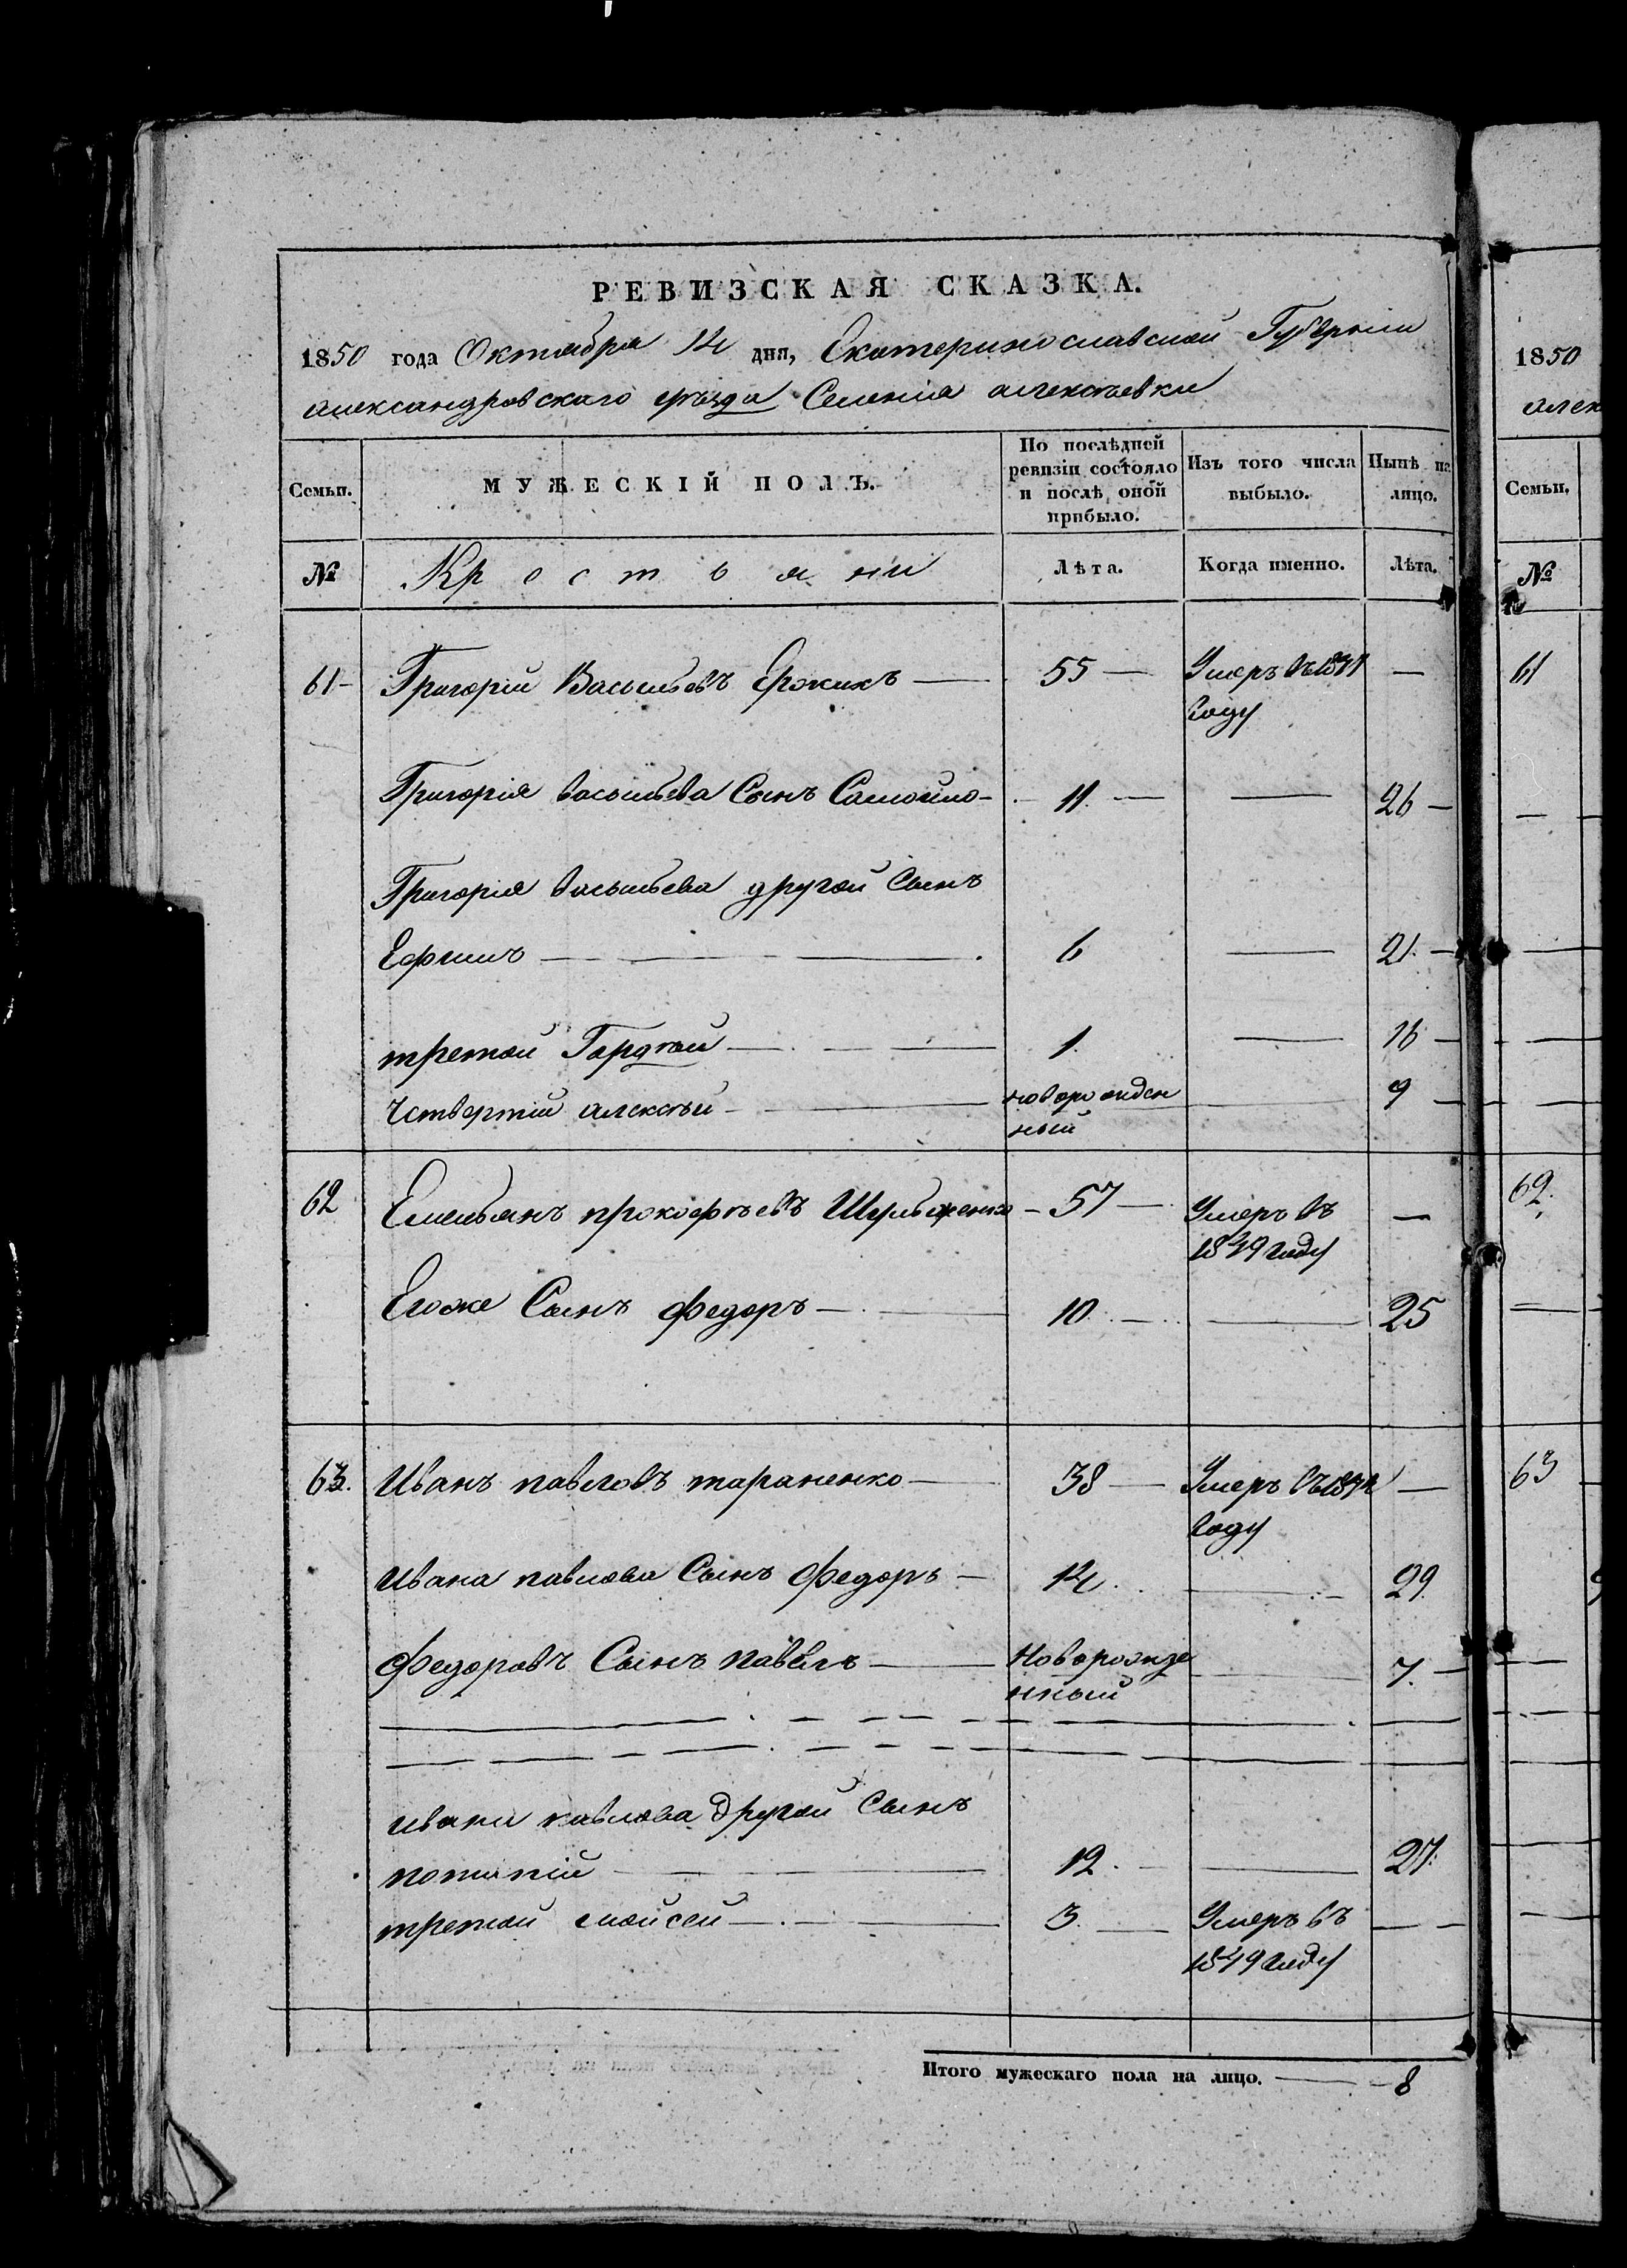 РЕВИЗСКАЯ СКАЗКА.
1850 года Октября 14 дня, Екатеринославской Губернии
александровскаго уѣзда Селенія алексѣевки
Семьи.
МУЖЕСКІЙ ПОЛЪ.
По послѣдней ревизіи состояло и послѣ оной прибыло.
Изъ того числа выбыло.
Нынѣ на лицо.
№
Крестьяни
Лѣта.
Когда именно.
Лѣта.
61 Григорій Васильевъ 55 — Умеръ въ —
году
Григорія васильева Сынъ Самойло 11. — — 26 —
Григорія васильева другой Сынъ
Ефимъ — 6 — 21. —
третой Гордѣй — 1. — 16 —
Четвертій алексѣй — новорожден — 9 —
ный
62 Емельянъ прокофьевъ — 57 — Умеръ въ —
1849 году
Егоже Сынъ федоръ — 10. — — 25
63. Иванъ павловъ тараненко — 38 — Умеръ въ —
году
Ивана павлова Сынъ федоръ — 14. — 29.
федоровъ Сынъ павелъ — Новорожде — 7. —
нный
ивана павлова другой Сынъ
потапій — 12. — 27.
третой мойсей — 3. — Умеръ въ —
1849 году
Итого мужескаго пола на лицо. — 8
1850
алек
Семьи.
№
61
62.
63